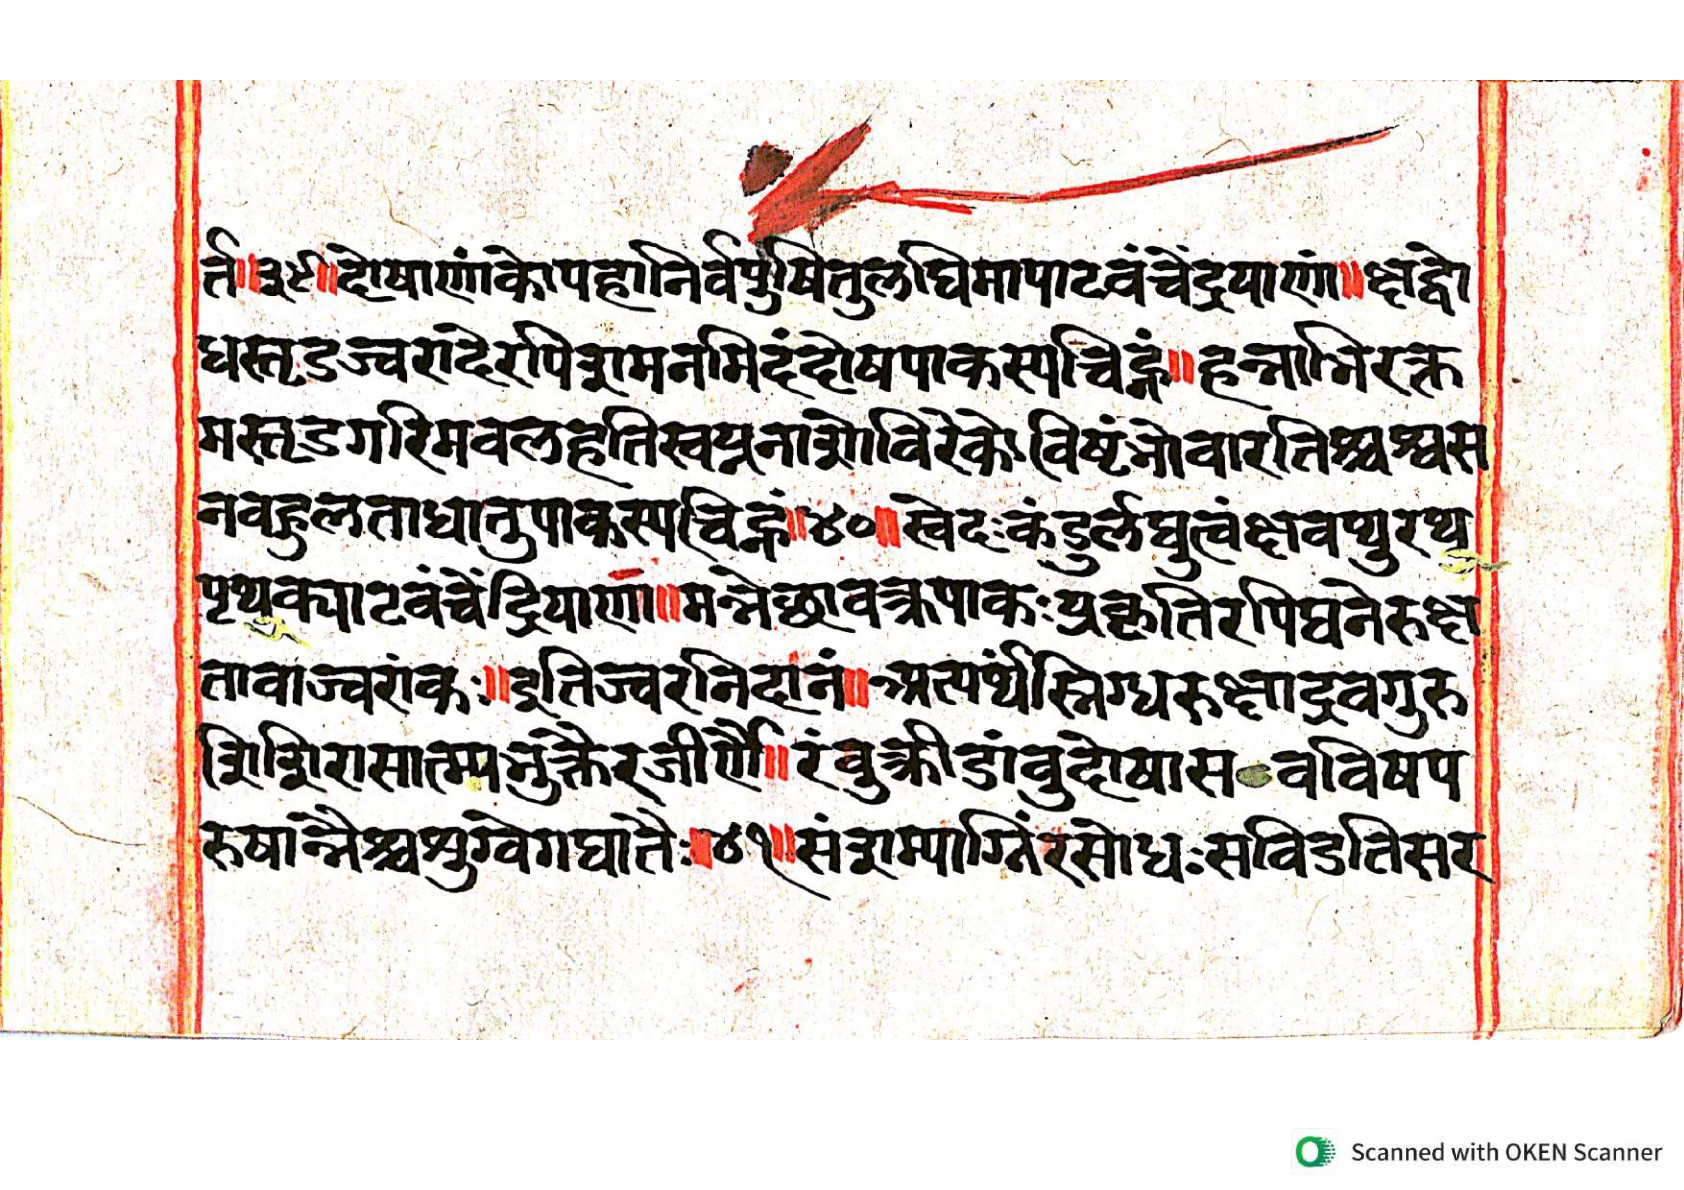 र्त॥३९॥दोषाणांकोपहानिर्वपुषितुलघिमापाटवंचेंद्रयाणां॥क्षुद्वो
धस्तृडज्वरादेरपिशमनमिदंदोषपाकस्यचिह्नं॥हन्नाभिरक्त
मस्तृडगरिमवलहतिस्वप्ननाशोविरेकोविष्टंभोवारतिश्चश्वस
नवहुलताधातुपाकस्यचिह्नं॥४०॥स्वेदःकंडुर्लघुत्वंक्षवथुरथ
पृथुक्पाटवंचेंद्रियाणां॥मन्नेछावक्त्रपाकःप्रकृतिरपिघनेरुक्ष
तावाज्वरांकः॥इतिज्वरनिदानं॥अत्यर्थंस्निग्धरुक्षाद्रवगुरु
शिशिरासात्म्यभुक्तैरजीर्णै॥रंवुक्रीडांवुदोषास वविषप
रुषान्नैश्चश्रुग्वेगघातैः॥४१॥संशम्याग्निंरसोधःसविडतिसर
Scanned with OKEN Scanner